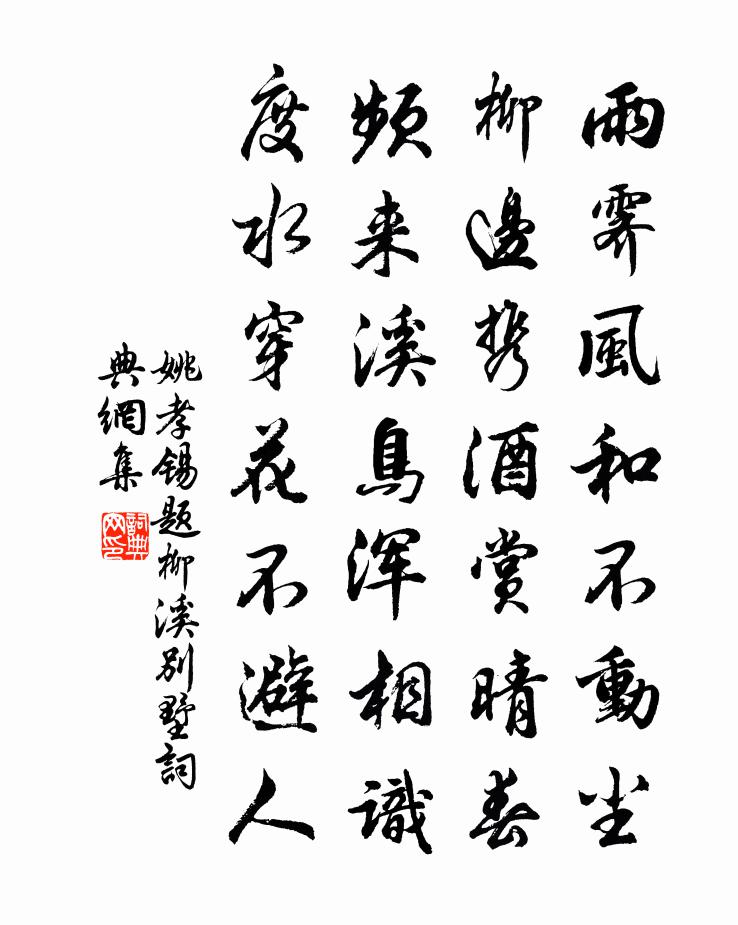 雨霁風和不動尘
柳邊携酒賞晴春
頻来溪鳥浑相識
度水穿花不避人
姚孝锡题柳溪别墅詞
典網集
詞典
网印